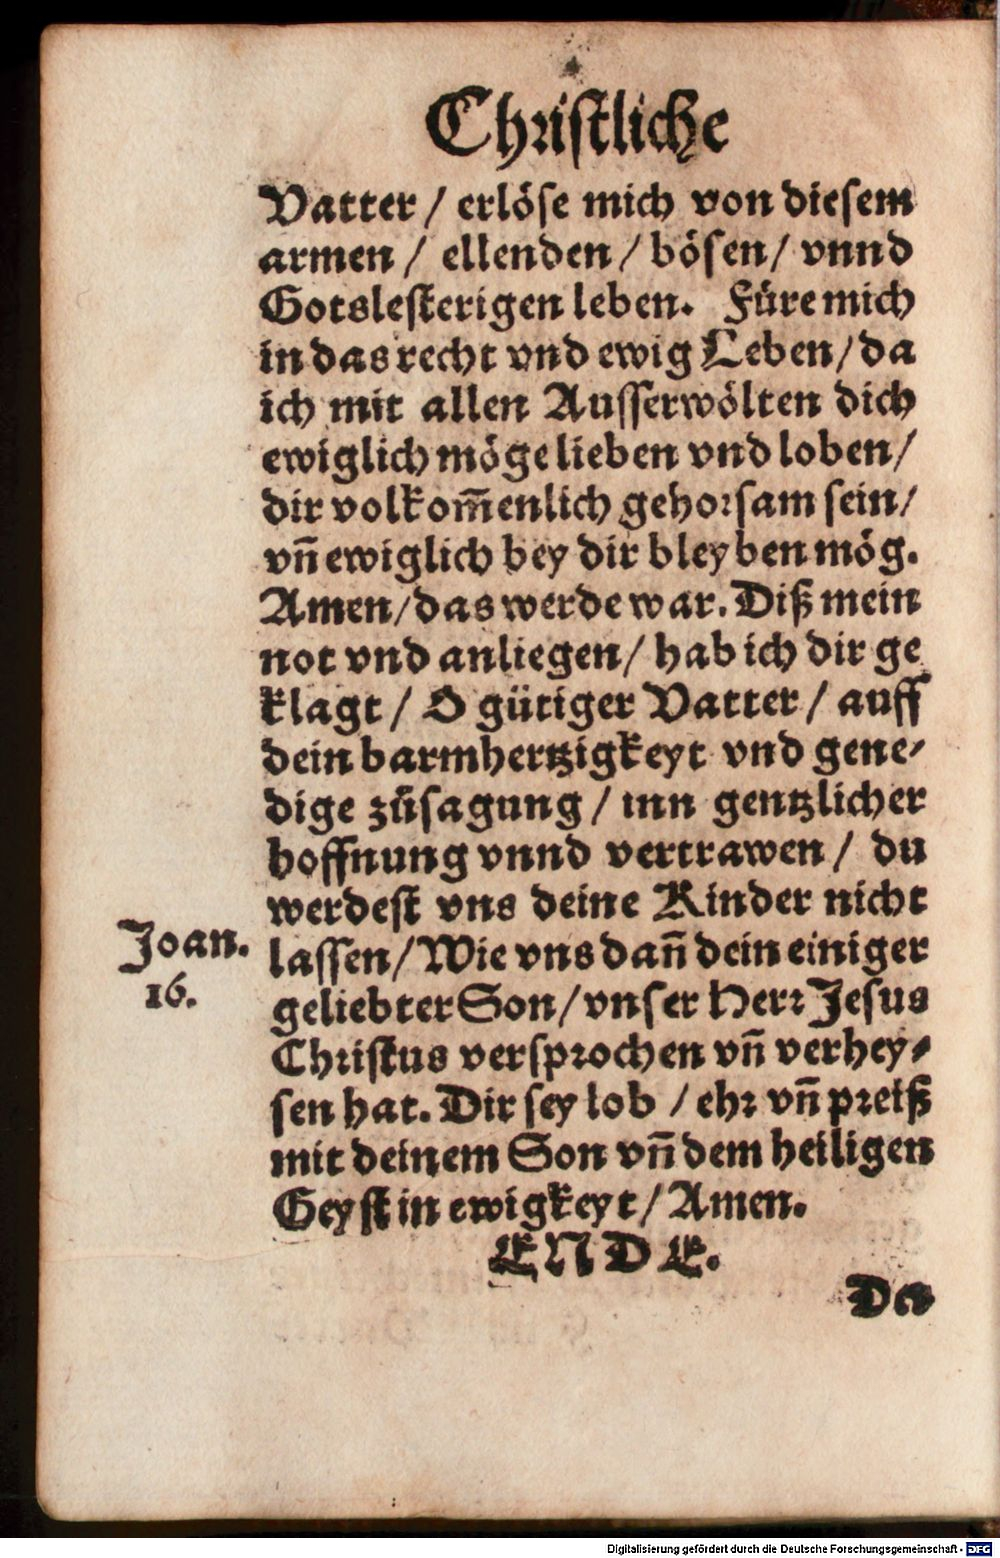 Christliche
Vatter / erlöse mich von diesem
armen / ellenden / bösen / vnnd
Gotslesterigen leben. Füre mich
in das recht vnd ewig Leben / da
ich mit allen Ausserwölten dich
ewiglich möge lieben vnd loben /
dir volkom̃enlich gehorsam sein /
vñ ewiglich bey dir bleyben mög.
Amen / das werde war. Diß mein
not vnd anliegen / hab ich dir ge
klagt / O gütiger Vatter / auff
dein barmhertzigkeyt vnd gene-
dige zůsagung / inn gentzlicher
hoffnung vnnd vertrawen / du
werdest vns deine Kinder nicht
lassen / Wie vns dañ dein einiger
Joan.
16.
geliebter Son / vnser Herr Jesus
Christus versprochen vñ verhey-
sen hat. Dir sey lob / ehr vñ preiß
mit deinem Son vñ dem heiligen
Geyst in ewigkeyt / Amen.
ENDE.
Digitalisierung gefördert durch die Deutsche Forschungsgemeinschaft - DFG